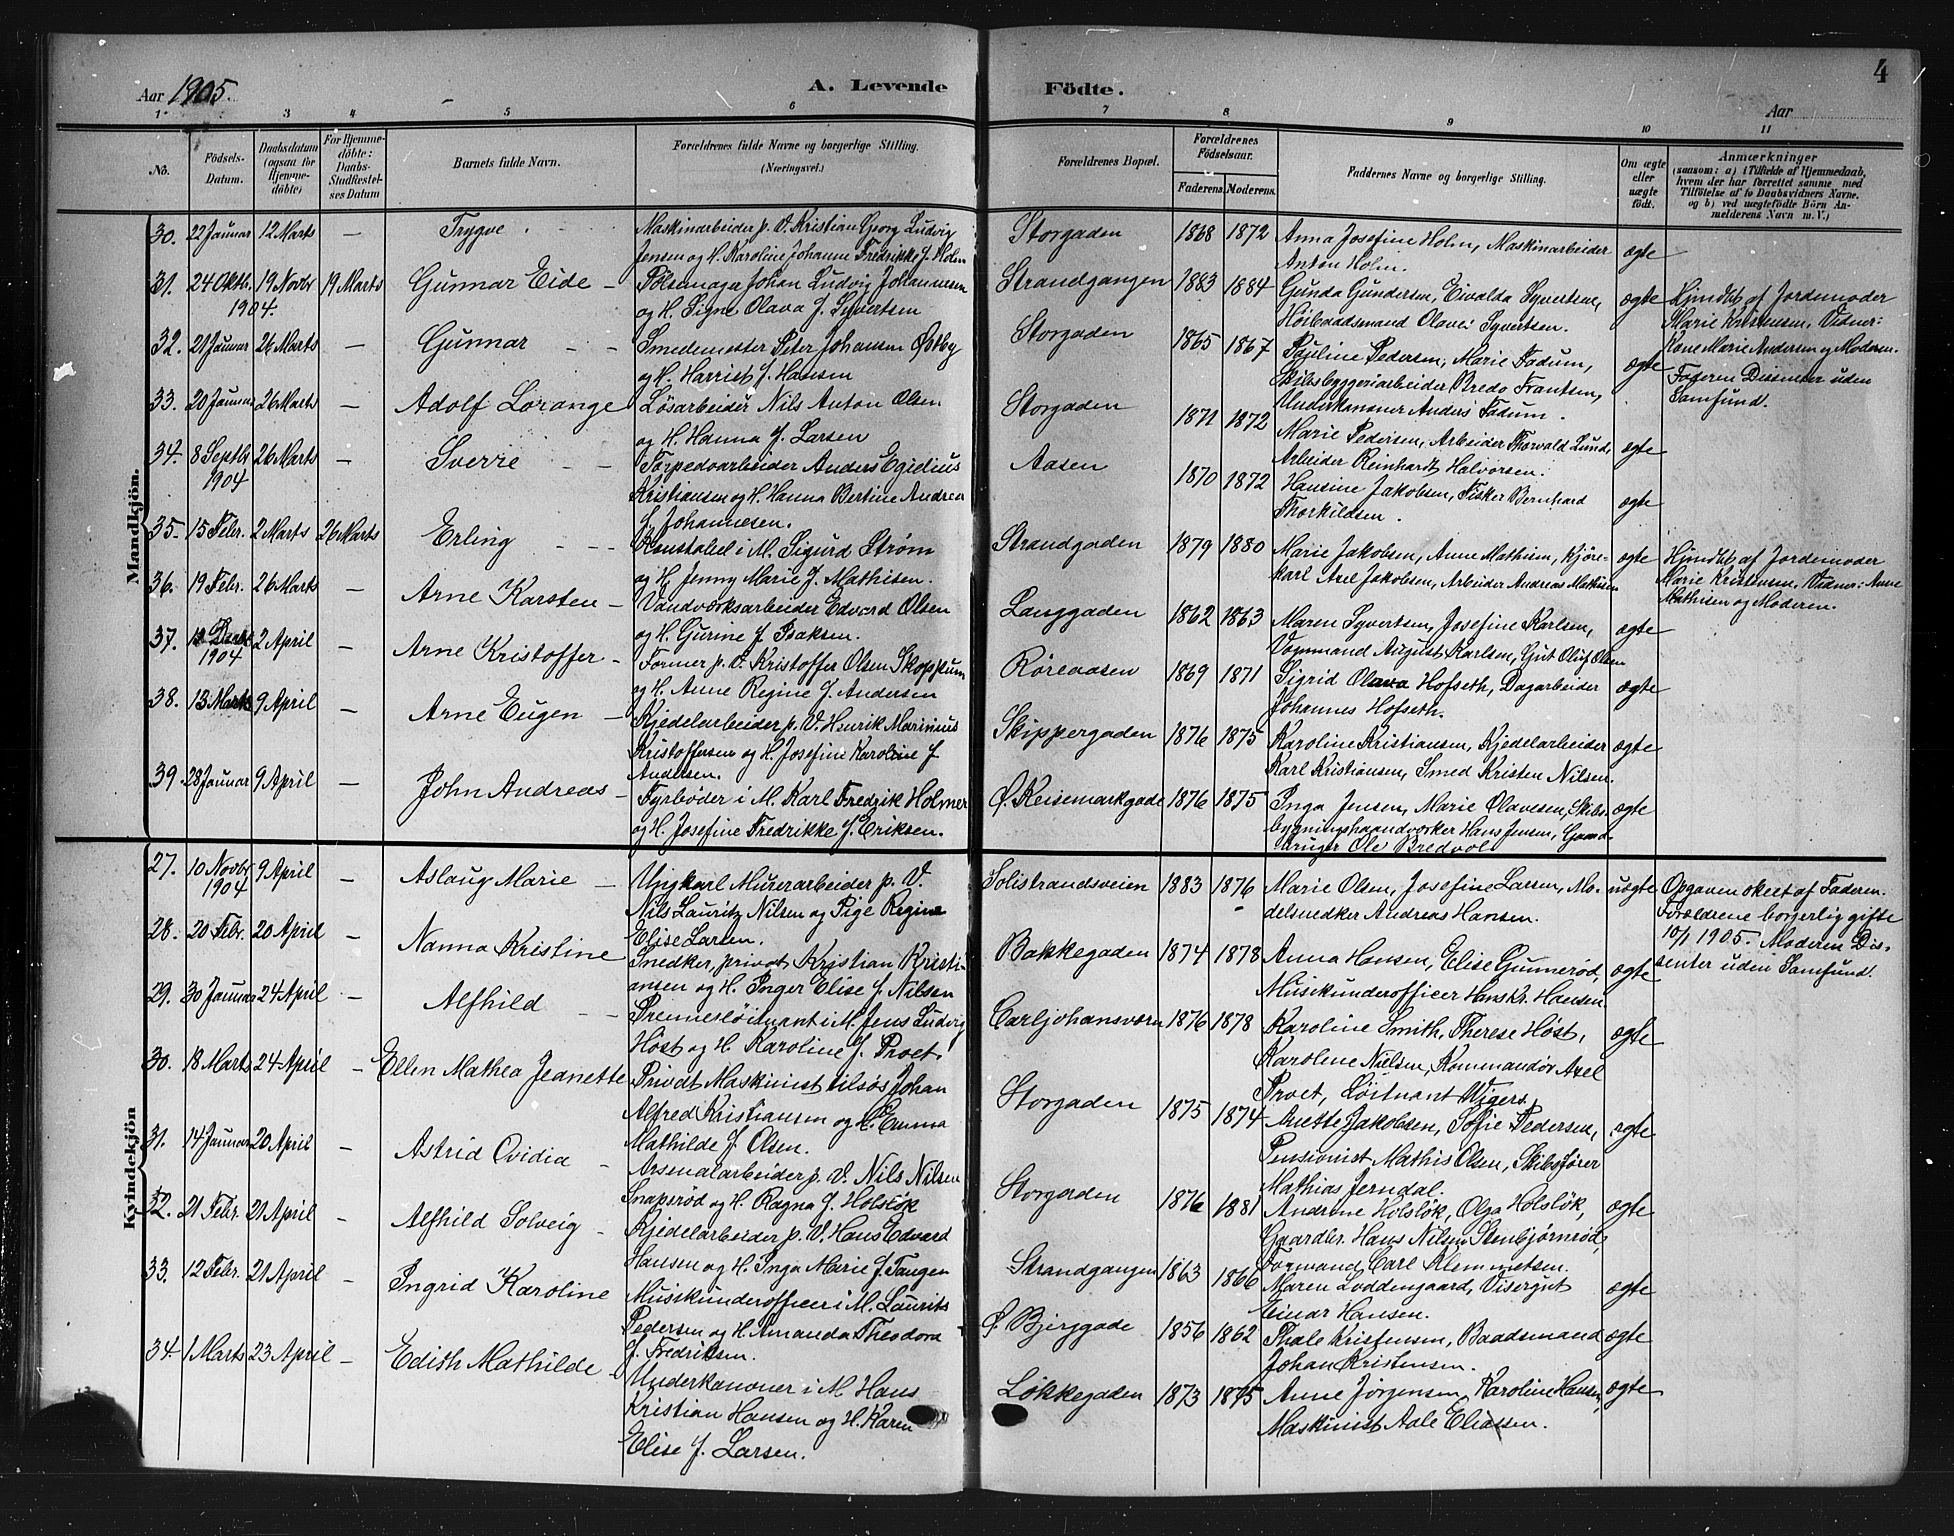 Aar 1905.
A. Levende Födte.
4
Aar
1 3 4 5 6 7 8 9 10 11
No.
Födsels-Datum.
Daabsdatum (ogsaa for Hjemme-döbte)
For Hjemme-döbte: Daabs-Stadfæstel-ses Datum
Barnets fulde Navn.
Forældrenes fulde Navne og borgerlige Stilling.
(Næringsvei.)
Forældrenes Bopæl.
Forældrenes Födselsaar.
Faderens. Moderens.
Faddernes Navne og borgerlige Stilling.
Om ægte eller uægte födt.
Anmærkninger
(saasom: a) i Tilfælde af Hjemmedaab,
hvem der har forrettet samme med
Tilföielse af to Daabsvidners Navne.
og b) ved uægtefödte Börn An-
melderens Navn m. V.)
Mandkjön.
30. 22 Januar 12 Marts — Trygve
Maskinarbeider p. V. Kristian Georg Ludvig
Jensen og H. Karoline Johanne Fredrikke f. Holm
Storgaden 1868 1872
Anna Josefine Holm, Maskinarbeider
Anton Holm.
ægte
31. 24 Oktb. 1904. 19 Novbr 19 Marts Gunnar Eide —
Pölsemager Johan Ludvig Johannesen
og H. Signe Olava f. Syvertsen
Strandgangen 1883 1884
Gunda Gundersen, Eivalda Syvertsen,
Høibaadsmand Olaves Syvertsen.
ægte
Hjmdbt. af Jordemoder
Marie Kristensen, Vidner:
Kone Marie Andersen og Moderen.
32. 21 Januar 26 Marts — Gunnar
Smedemester Peter Johansen Østby
og H. Harriet f. Hansen
Storgaden 1865 1867
Pauline Pedersen, Marie Fadum,
Skibsbyggeriarbeider Bredo Frantsen,
Underkanoner Anders Fadum.
ægte
Faderen Dissenter uden
Samfund.
33. 20 Januar 26 Marts — Adolf Lorange
Løsarbeider Nils Anton Olsen
og H. Hanna f. Larsen
Storgaden 1871 1872
Marie Pedersen, Arbeider Thorvald Lund,
Arbeider Reinhardt Halvorsen.
ægte
34. 8 Septb. 1904 26 Marts — Sverre
Torpedoarbeider Anders Egidius
Kristiansen og H. Hanna Bertine Andrea
f. Johannesen.
Aasen 1870 1872
Hansine Jakobsen, Fisker Bernhard
Thorkildsen.
ægte
35. 15 Febr. 2 Marts 26 Marts Erling
Konstabel i M. Sigurd Strøm
og H. Jenny Marie f. Mathisen.
Strandgaden 1879 1880
Marie Jakobsen, Anne Mathisen, Kjøre-
karl Axel Jakobsen, Arbeider Andreas Mathisen
ægte
Hjmdbt. af Jordemoder
Marie Kristensen, Vidner: Anne
Mathisen og Moderen.
36. 19 Febr. 26 Marts — Arne Karsten —
Vandværksarbeider Edvard Olsen
og H. Gurine f. Isaksen.
Langgaden 1862 1863
Maren Syvertsen, Josefine Karlsen,
Vognmand August Karlsen, Gut Oluf Olsen
ægte
37. 1904 2 April — Arne Kristoffer —
Former p. V. Kristoffer Olsen Skoppum
og H. Anne Regine f. Andersen
Røreaasen 1869 1871
Sigrid Olava Hofseth, Dagarbeider
Johannes Hofseth.
ægte
38. 13 Marts 9 April — Arne Eugen —
Kjedelarbeider p. V. Henrik Marinius
Kristoffersen og H. Josefine Karoline f.
Andersen.
Skippergaden 1876 1875
Karoline Kristiansen, Kjedelarbeider
Karl Kristiansen, Smed Kristen Nilsen.
ægte
39. 28 Januar 9 April — John Andreas —
Fyrbøder i M. Karl Fredrik Holmer
og H. Josefine Fredrikke f. Eriksen.
Ø. Keisemarkgade 1876 1875
Inga Jensen, Marie Olavesen, Skibs-
bygningshaandværker Hans Jensen, Gaard-
bruger Ole Bredvol
ægte
Kvindekjön
27. 10 Novbr 1904 9 April — Aslaug Marie —
Ugiftkarl Murerarbeider p. V.
Nils Lauritz Nilsen og Pige Regine
Elise Larsen.
Solistrandsveien 1883 1876
Marie Olsen, Josefine Larsen, Mo-
delsnedker Andreas Hansen.
uægte
Opgaven skeet af Faderen.
Forældrene borgerlig gifte
10/1 1905. Moderen Dis-
senter uden Samfund.
28. 20 Febr. 20 April — Nanna Kristine
Snedker, privat Kristian Kristi-
ansen og H. Inger Elise f. Nilsen
Bakkegaden 1874 1878
Anna Hansen, Elise Gunnerød,
Musikunderofficer Hans Kr. Hansen
ægte
29. 30 Januar 24 April — Alfhild
Premierløitnant i M. Jens Ludvig
Høst og H. Karoline f. Proet.
Carljohansværn 1876 1878
Karoline Smith, Therese Høst,
Karoline Nielsen, Kommandør Axel
Proet, Løitnant Wigers.
ægte
30. 18 Marts 24 April — Ellen Mathea Jeanette
Privat Maskinist tilsøs Johan
Alfred Kristiansen og H. Emma
Mathilde f. Olsen.
Storgaden 1875 1874
Anette Jakobsen, Sofie Pedersen,
Pensionist Mathis Olsen, Skibsfører
Mathias Jerndal.
ægte
31. 14 Januar 20 April — Astrid Ovidia —
Arsenalarbeider p. V. Nils Nilsen
Snaperød og H. Ragna f. Holsløk
Storgaden 1876 1881
Andrine Holsløk, Olga Holsløk,
Gaardbr. Hans Nilsen Stenbjørnrød,
Formand Carl Klemmetsen.
ægte
32. 21 Febr. 21 April — Alfhild Solveig —
Kjedelarbeider p. V. Hans Edvard
Hansen og H. Inga Marie f. Tangen
Strandgangen 1863 1866
Maren Loddengaard, Visergut
Einar Hansen.
ægte
33. 12 Febr. 21 April — Ingrid Karoline
Musikunderofficer i M. Laurits
Pedersen og H. Amanda Theodora
f. Fredriksen.
Ø. Bjerggade 1856 1862
Thale Kristensen, Baadsmand
Johan Kristensen.
ægte
34. 1 Marts 23 April — Edith Mathilde
Underkanoner i M. Hans
Kristian Hansen og H. Karen
Elise f. Larsen.
Løkkegaden 1873 1875
Anne Jørgensen, Karoline Hansen,
Maskinist Aale Eliassen.
ægte